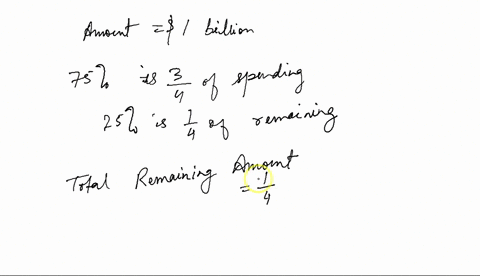 Amount = $ 1 billion
75% is 3/4 of spending
25% is 1/4 of remaining
Total Remaining Amount
= 1/4